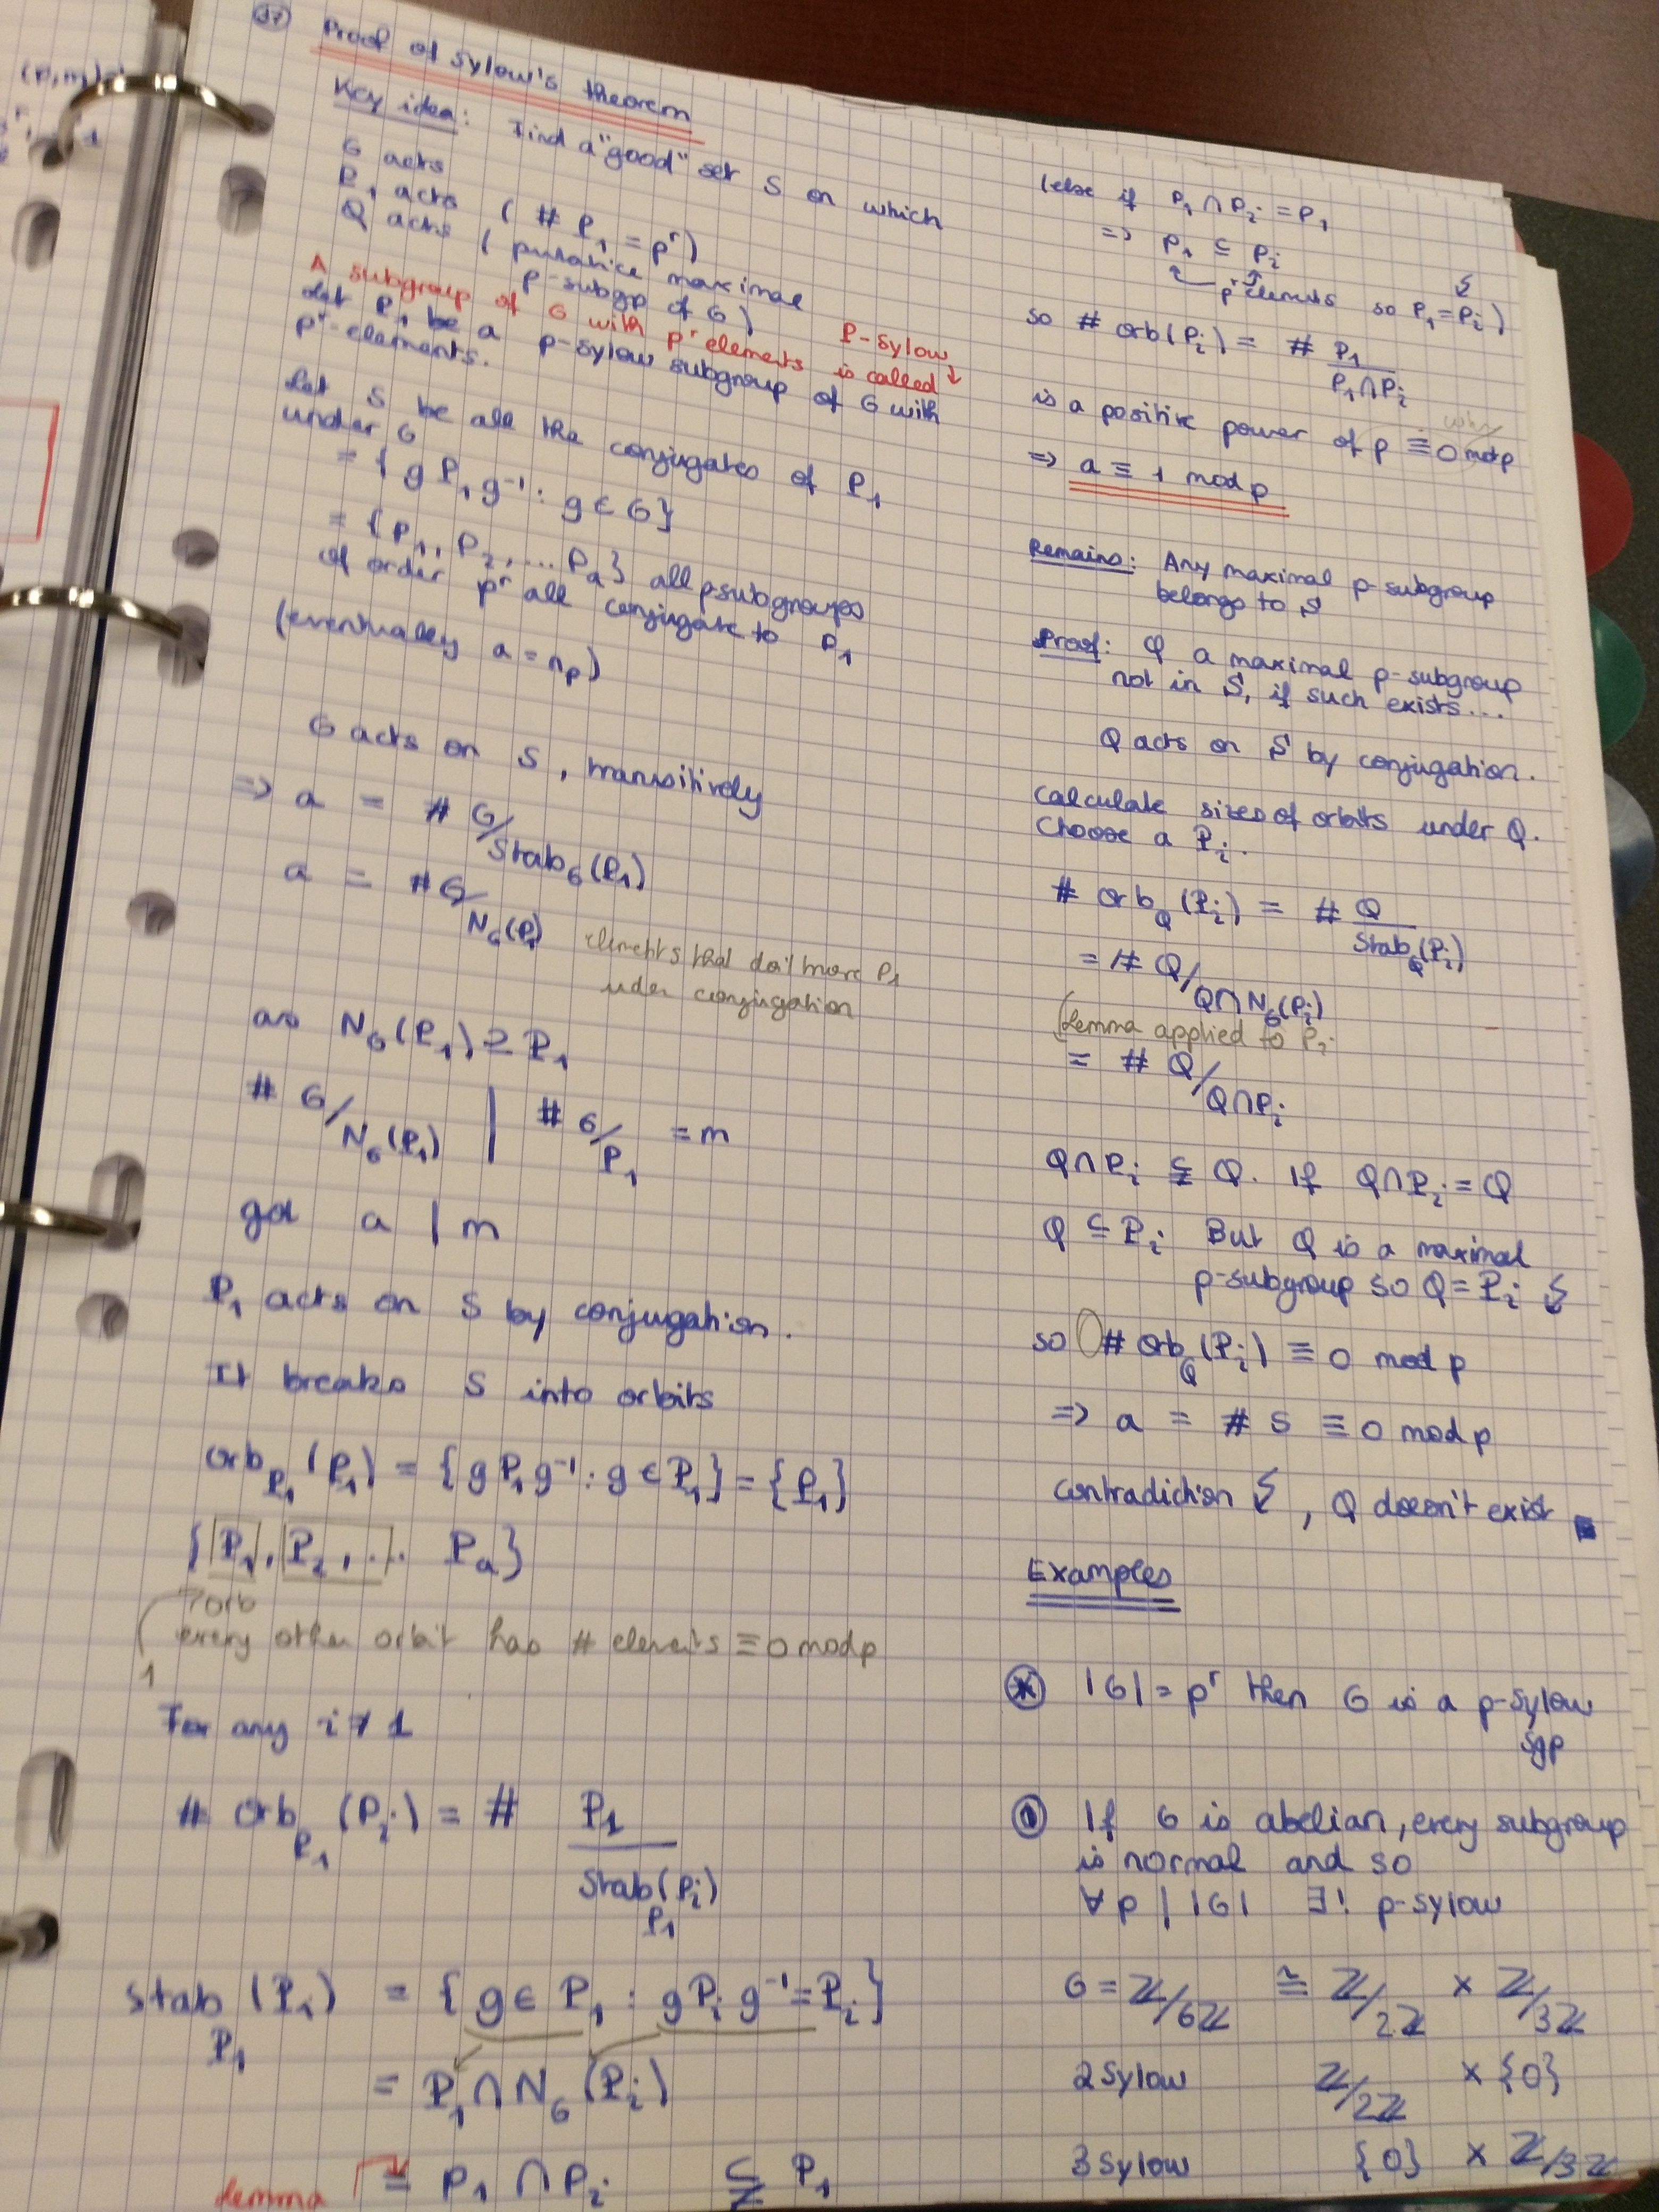 37 Proof of Sylow's theorem
Key idea: Find a "good" set S on which
G acts
P₁ acts ( # P₁ = pʳ)
Q acts ( putative maximal
p-subgp of G )
A subgroup of G with pʳ elements is called P-Sylow ↓
Let P₁ be a p-sylow subgroup of G with
pʳ-elements.
Let S be all the conjugates of P₁
under G
= { g P₁ g⁻¹ : g ∈ G }
= { P₁, P₂, ... Pₐ } all p subgroups
of order pʳ all conjugate to P₁
(eventually a = nₚ)
G acts on S, transitively
⇒ a = # G/Stab_G(P₁)
a = # G/N_G(P₁) elements that don't move P₁
under conjugation
as N_G(P₁) ⊇ P₁
# G/N_G(P₁) | # G/P₁ = m
got a | m
P₁ acts on S by conjugation.
It breaks S into orbits
orb_P₁(P₁) = { g P₁ g⁻¹ : g ∈ P₁ } = { P₁ }
{ P₁, P₂, ... Pₐ }
orb
every other orbit has # elements ≡ 0 mod p
1
For any i ≠ 1
# orb_P₁(Pᵢ) = # P₁/Stab_P₁(Pᵢ)
stab_P₁(Pᵢ) = { g ∈ P₁ : g Pᵢ g⁻¹ = Pᵢ }
= P₁ ∩ N_G(Pᵢ)
lemma = P₁ ∩ Pᵢ ⊊ P₁
(else if P₁ ∩ Pᵢ = P₁
⇒ P₁ ⊆ Pᵢ
pʳ elements so P₁ = Pᵢ ↯ )
so # orb(Pᵢ) = # P₁/P₁∩Pᵢ
why
is a positive power of p ≡ 0 mod p
⇒ a ≡ 1 mod p
Remains: Any maximal p-subgroup
belongs to S
Proof: Q a maximal p-subgroup
not in S, if such exists...
Q acts on S by conjugation.
Calculate sizes of orbits under Q.
Choose a Pᵢ.
# orb_Q(Pᵢ) = # Q/Stab_Q(Pᵢ)
= # Q/Q∩N_G(Pᵢ)
(Lemma applied to Pᵢ
= # Q/Q∩Pᵢ
Q∩Pᵢ ⊊ Q. If Q∩Pᵢ = Q
Q ⊆ Pᵢ But Q is a maximal
p-subgroup so Q = Pᵢ ↯
so # orb_Q(Pᵢ) ≡ 0 mod p
⇒ a = # S ≡ 0 mod p
contradiction ↯, Q doesn't exist ■
Examples
⊛ |G| = pʳ then G is a p-sylow
sgp
If G is abelian, every subgroup
is normal and so
∀ p | |G| ∃! p-sylow
G = ℤ/6ℤ ≅ ℤ/2ℤ × ℤ/3ℤ
2 Sylow ℤ/2ℤ × {0}
3 Sylow {0} × ℤ/3ℤ